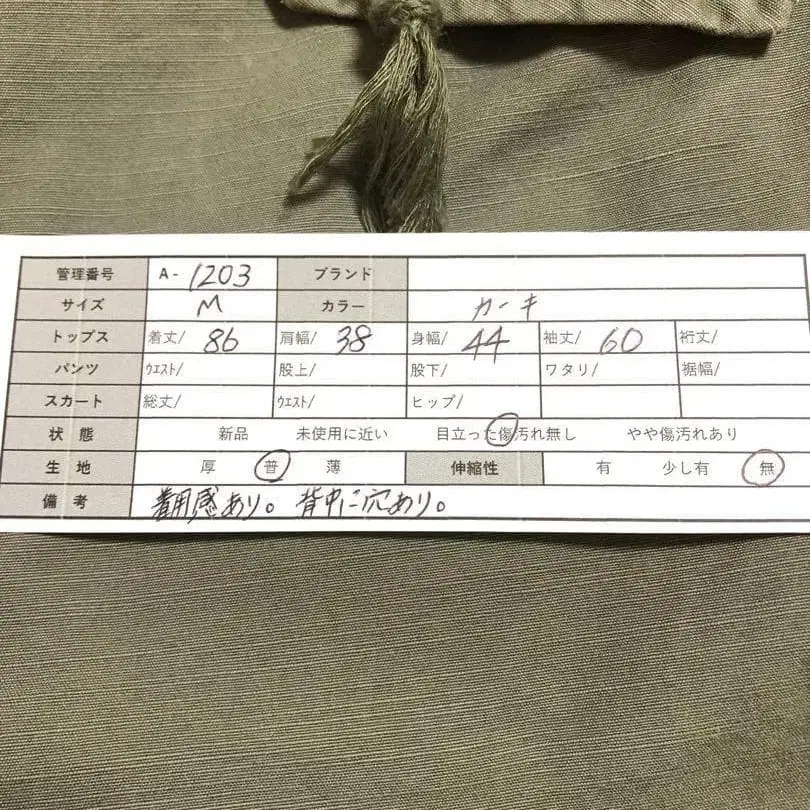 管理番号 A- 1203 ブランド
サイズ M カラー カーキ
トップス 着丈/ 86 肩幅/ 38 身幅/ 44 袖丈/ 60 裄丈/
パンツ ウエスト/ 股上/ 股下/ ワタリ/ 裾幅/
スカート 総丈/ ウエスト/ ヒップ/
状態 新品 未使用に近い 目立った傷汚れ無し やや傷汚れあり
生地 厚 普 薄 伸縮性 有 少し有 無
備考 着用感あり。背中に穴あり。